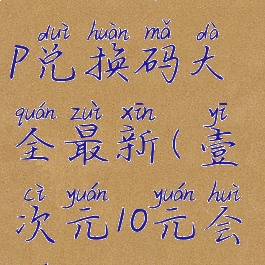 duì huàn mǎ dà
P兑换码大
quán zuì xīn yī
全最新(壹
cì yuán yuán huì
次元10元会